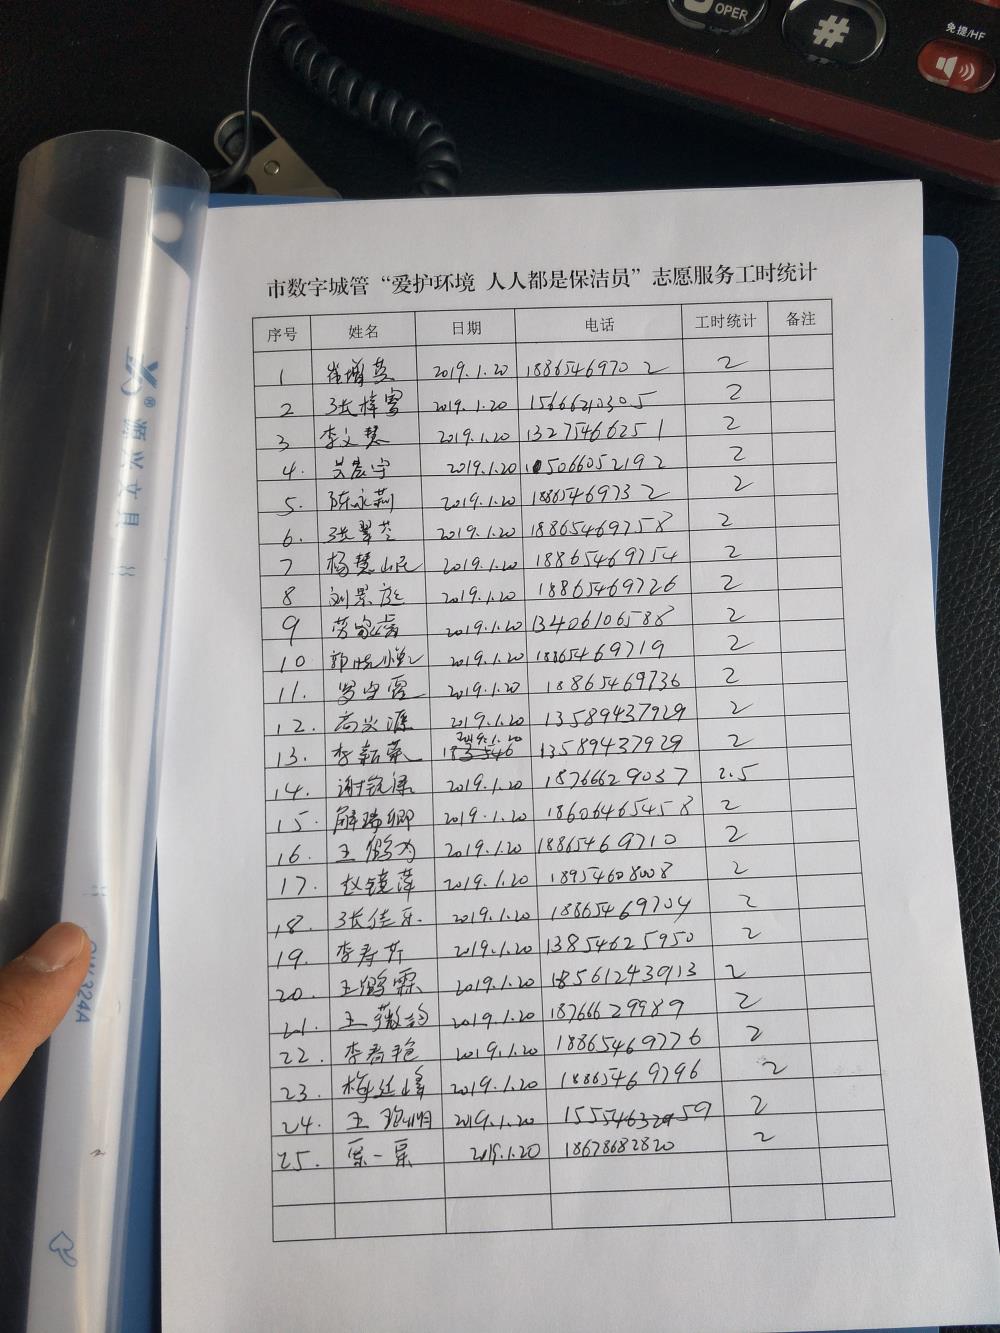 OPER
#
免提/HF
振兴文具
市数字城管“爱护环境 人人都是保洁员”志愿服务工时统计
序号 姓名 日期 电话 工时统计 备注
1 崔增英 2019.1.20 18865469702 2
2 张梓雪 2019.1.20 15666210305 2
3 李文慧 2019.1.20 13275466251 2
4. 2019.1.20 15066052192 2
5. 陈咏莉 2019.1.20 18865469732 2
6. 张翠芝 2019.1.20 18865469758 2
7 杨慧 2019.1.20 18865469754 2
8 刘景庭 2019.1.20 18865469726 2
9 2019.1.20 13406106588 2
10 郭晓 2019.1.20 18865469719 2
11. 2019.1.20 18865469736 2
12. 高兴源 2019.1.20 13589437929 2
13. 李 2019.1.20 13589437929 2
14. 谢 2019.1.20 18766629037 2.5
15. 解瑞卿 2019.1.20 18606465458 2
16. 王鹤为 2019.1.20 18865469710 2
17. 赵镜萍 2019.1.20 18954608008 2
18. 张佳乐 2019.1.20 18865469704 2
19. 李寿芹 2019.1.20 13854625950 2
20. 王鹤霖 2019.1.20 18561243913 2
21. 王薇 2019.1.20 18766629989 2
22. 李春艳 2019.1.20 18865469776 2
23. 梅廷峰 2019.1.20 18865469796 2
24. 王 2019.1.20 2
25. 一 2019.1.20 18678682820 2